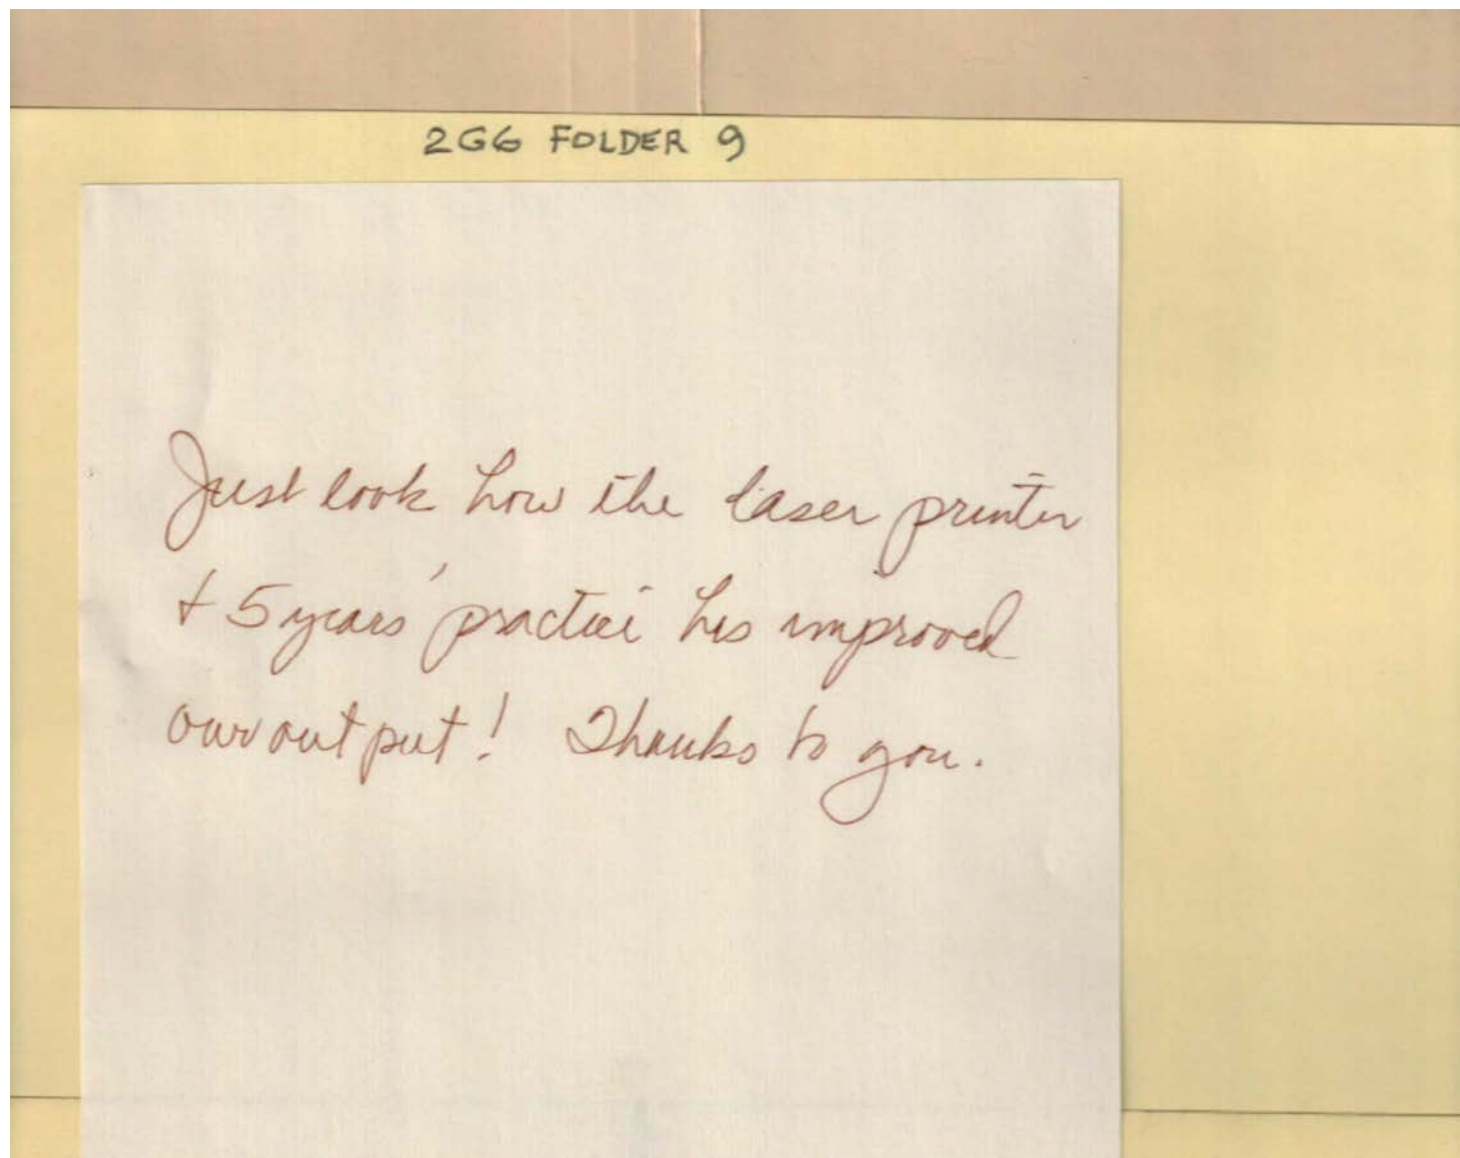 2G6 FOLDER 9
Just look how the laser printer
+ 5 years' practice has improved
our output! Thanks to you.